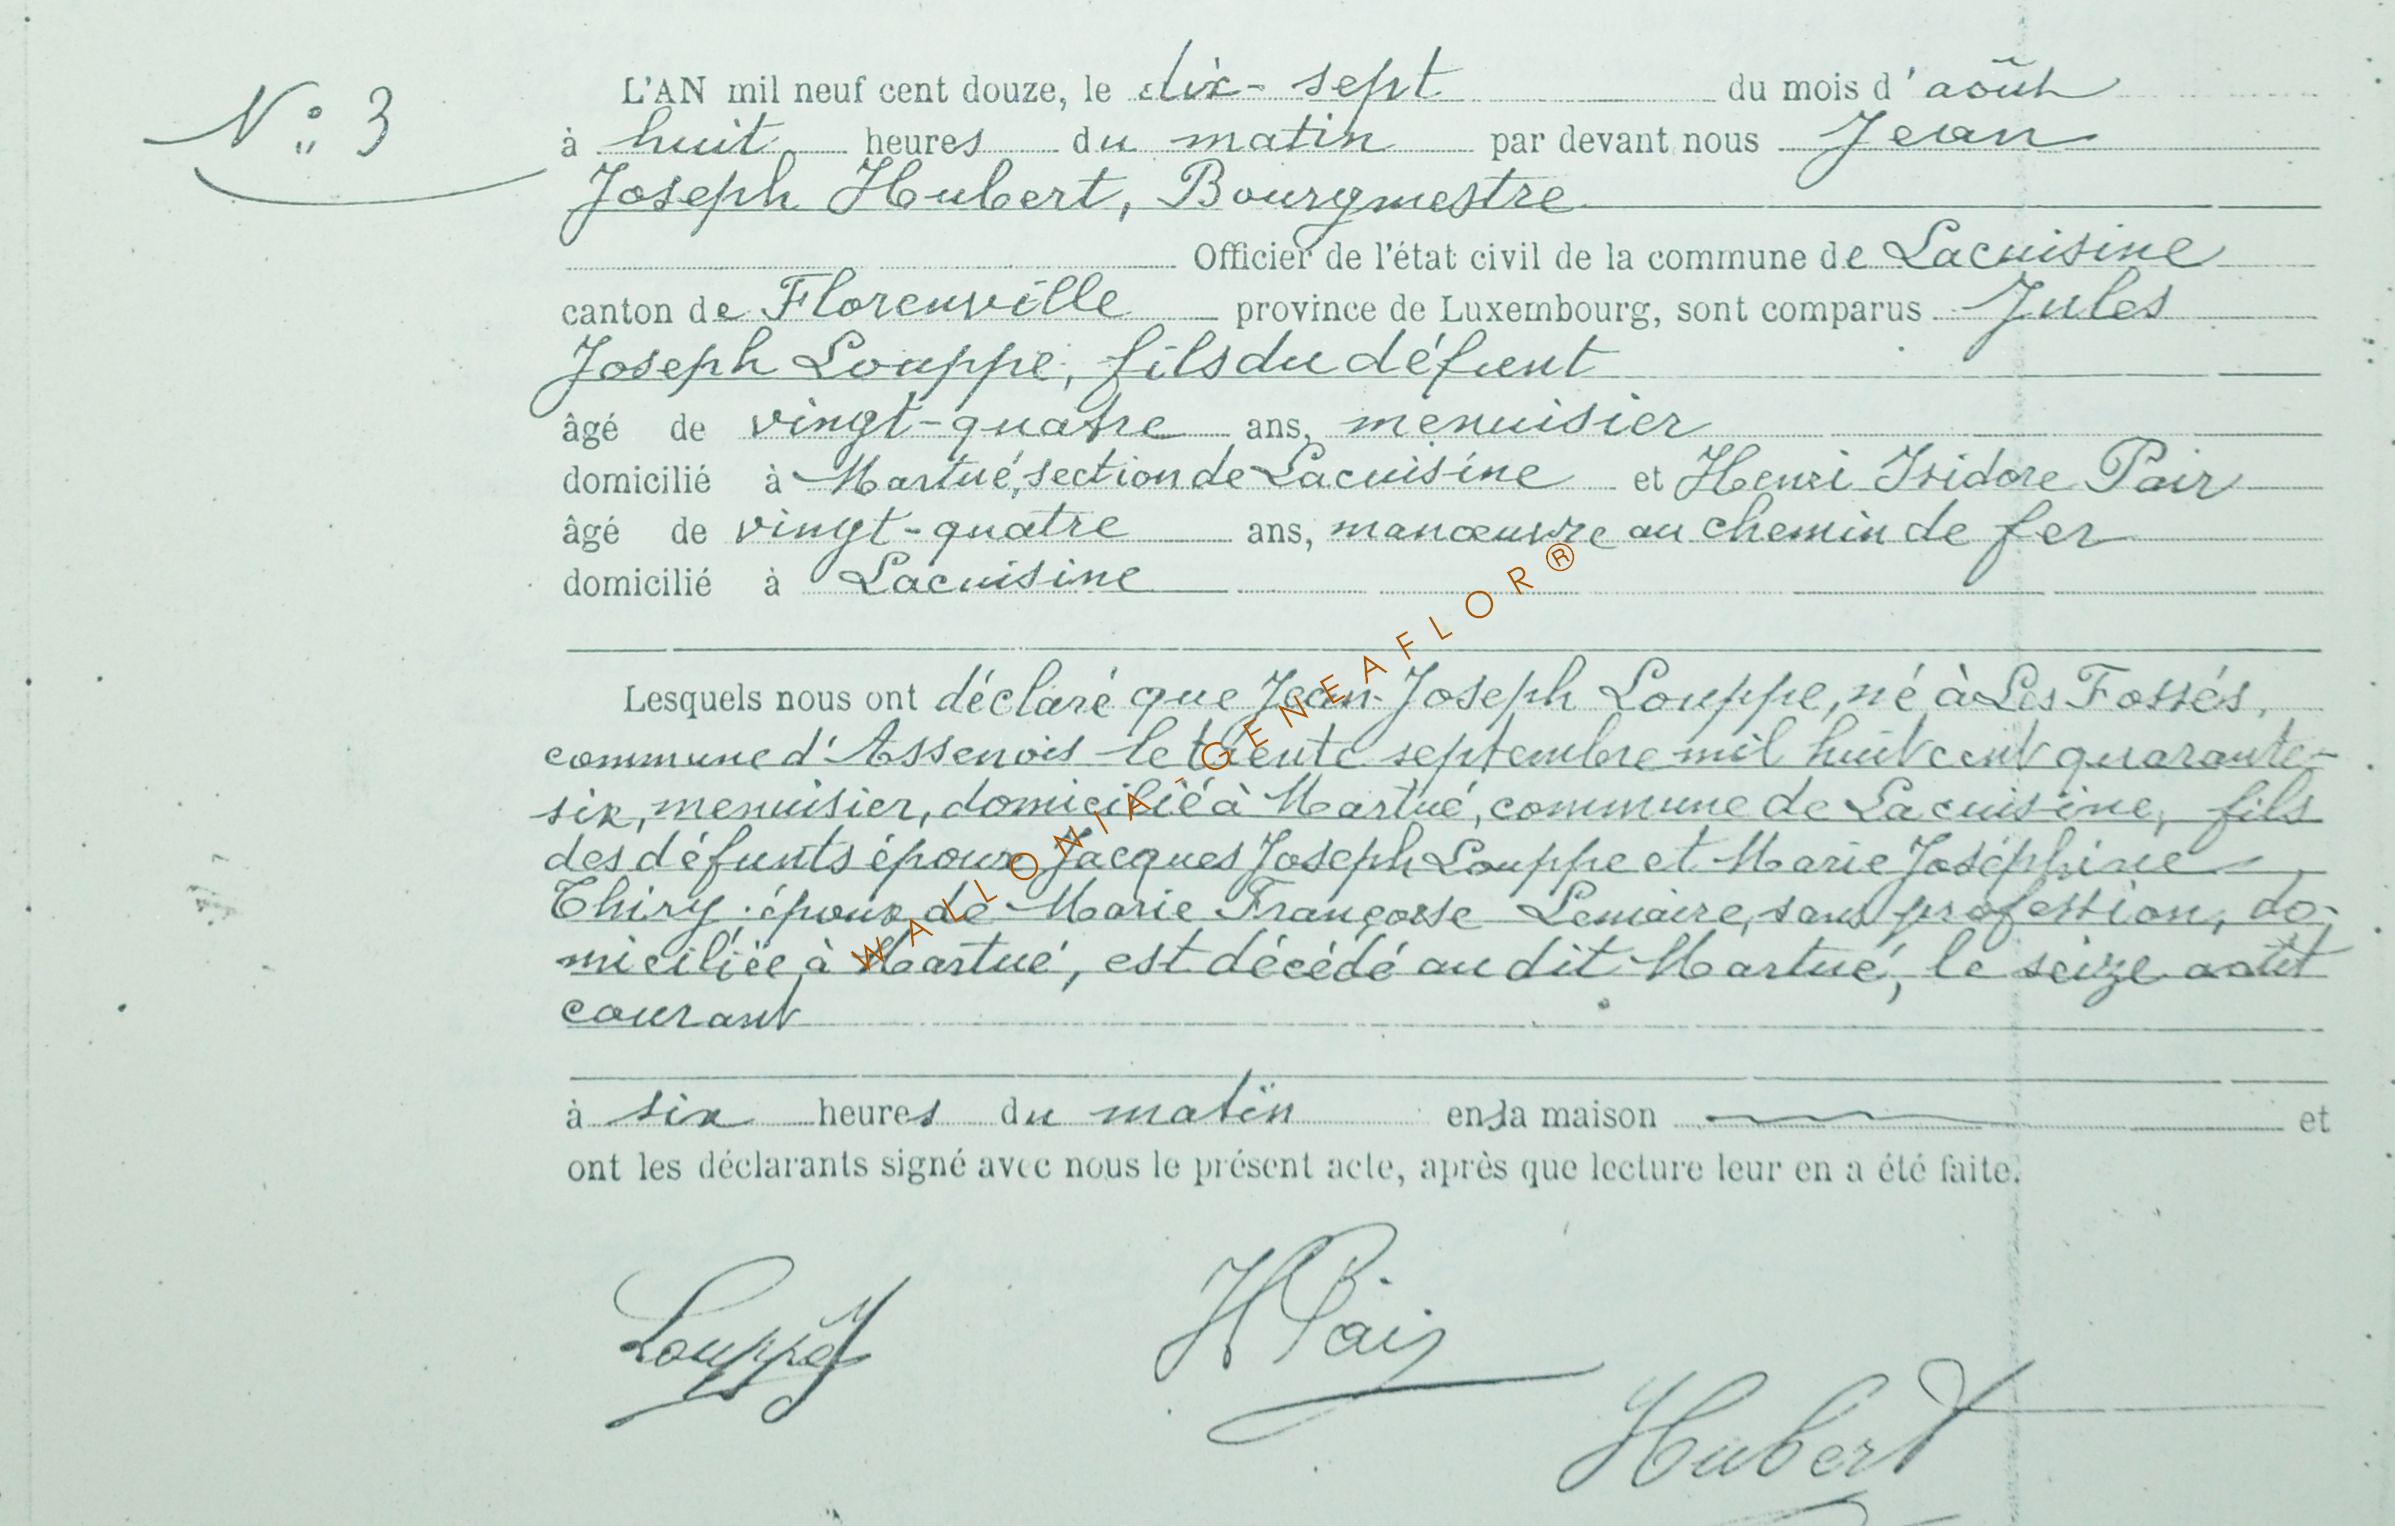 N° 3
L'AN mil neuf cent douze, le dix-sept du mois d'août
à huit heures du matin par devant nous Jean
Joseph Hubert, Bourgmestre
Officier de l'état civil de la commune de Lacuisine
canton de Florenville province de Luxembourg, sont comparus Jules
Joseph Louppe, fils du défunt
âgé de vingt-quatre ans, menuisier
domicilié à Martué, section de Lacuisine et Henri Isidore Pair
âgé de vingt-quatre ans, manœuvre au chemin de fer
domicilié à Lacuisine
Lesquels nous ont déclaré que Jean-Joseph Louppe, né à Les Fossés,
commune d'Assenois le trente septembre mil huit cent quarante-
six, menuisier, domicilié à Martué, commune de Lacuisine, fils
des défunts époux Jacques Joseph Louppe et Marie Joséphine
Thiry, époux de Marie Françoise Lemaire, sans profession, do-
miciliée à Martué, est décédé au dit Martué, le seize août
courant
à six heures du matin en sa maison et
ont les déclarants signé avec nous le présent acte, après que lecture leur en a été faite.
Louppe J
H Pair
Hubert
WALLONIA-GENEAFLOR®